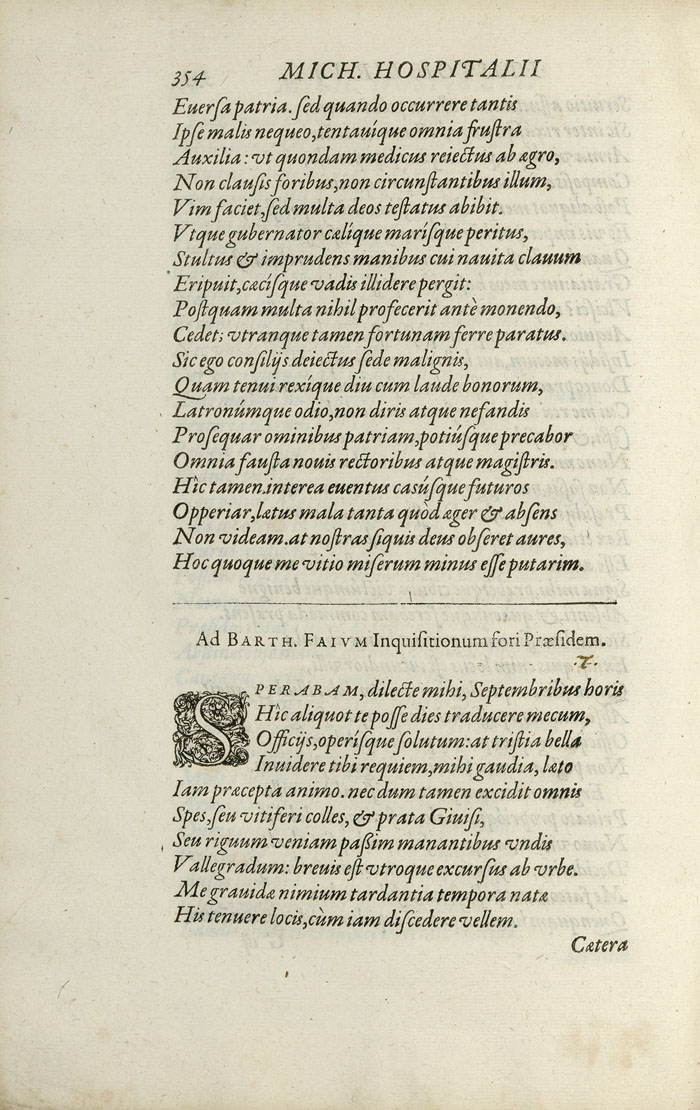 354 MICH. HOSPITALII
Euerſa patria. ſed quando occurrere tantis
Ipſe malis nequeo, tentauíque omnia fruſtra
Auxilia: vt quondam medicus reiectus ab ægro,
Non clauſis foribus, non circunſtantibus illum,
Vim faciet, ſed multa deos teſtatus abibit.
Vtque gubernator cælíque maríſque peritus,
Stultus & imprudens manibus cui nauita clauum
Eripuit, cæcíſque vadis illidere pergit:
Poſtquam multa nihil profecerit antè monendo,
Cedet; vtranque tamen fortunam ferre paratus.
Sic ego conſilijs deiectus ſede malignis,
Quam tenui rexíque diu cum laude bonorum,
Latronúmque odio, non diris atque nefandis
Proſequar ominibus patriam, potiúſque precabor
Omnia fauſta nouis rectoribus atque magiſtris.
Hîc tamen interea euentus caſúſque futuros
Opperiar, lætus mala tanta quòd æger & abſens
Non videam. at noſtras ſiquis deus obſeret aures,
Hoc quoque me vitio miſerum minus eſſe putarim.
Ad BARTH. FAIVM Inquiſitionum fori Præſidem.
SPERABAM, dilecte mihi, Septembribus horis
Hîc aliquot te poſſe dies traducere mecum,
Officijs, operíſque ſolutum: at triſtia bella
Inuidere tibi requiem, mihi gaudia, læto
Iam præcepta animo. nec dum tamen excidit omnis
Spes, ſeu vitiferi colles, & prata Giuiſi,
Seu riguum veniam paßim manantibus vndis
Vallegradum: breuis eſt vtroque excurſus ab vrbe.
Me grauidæ nimium tardantia tempora natæ
His tenuere locis, cùm iam diſcedere vellem.
Cætera